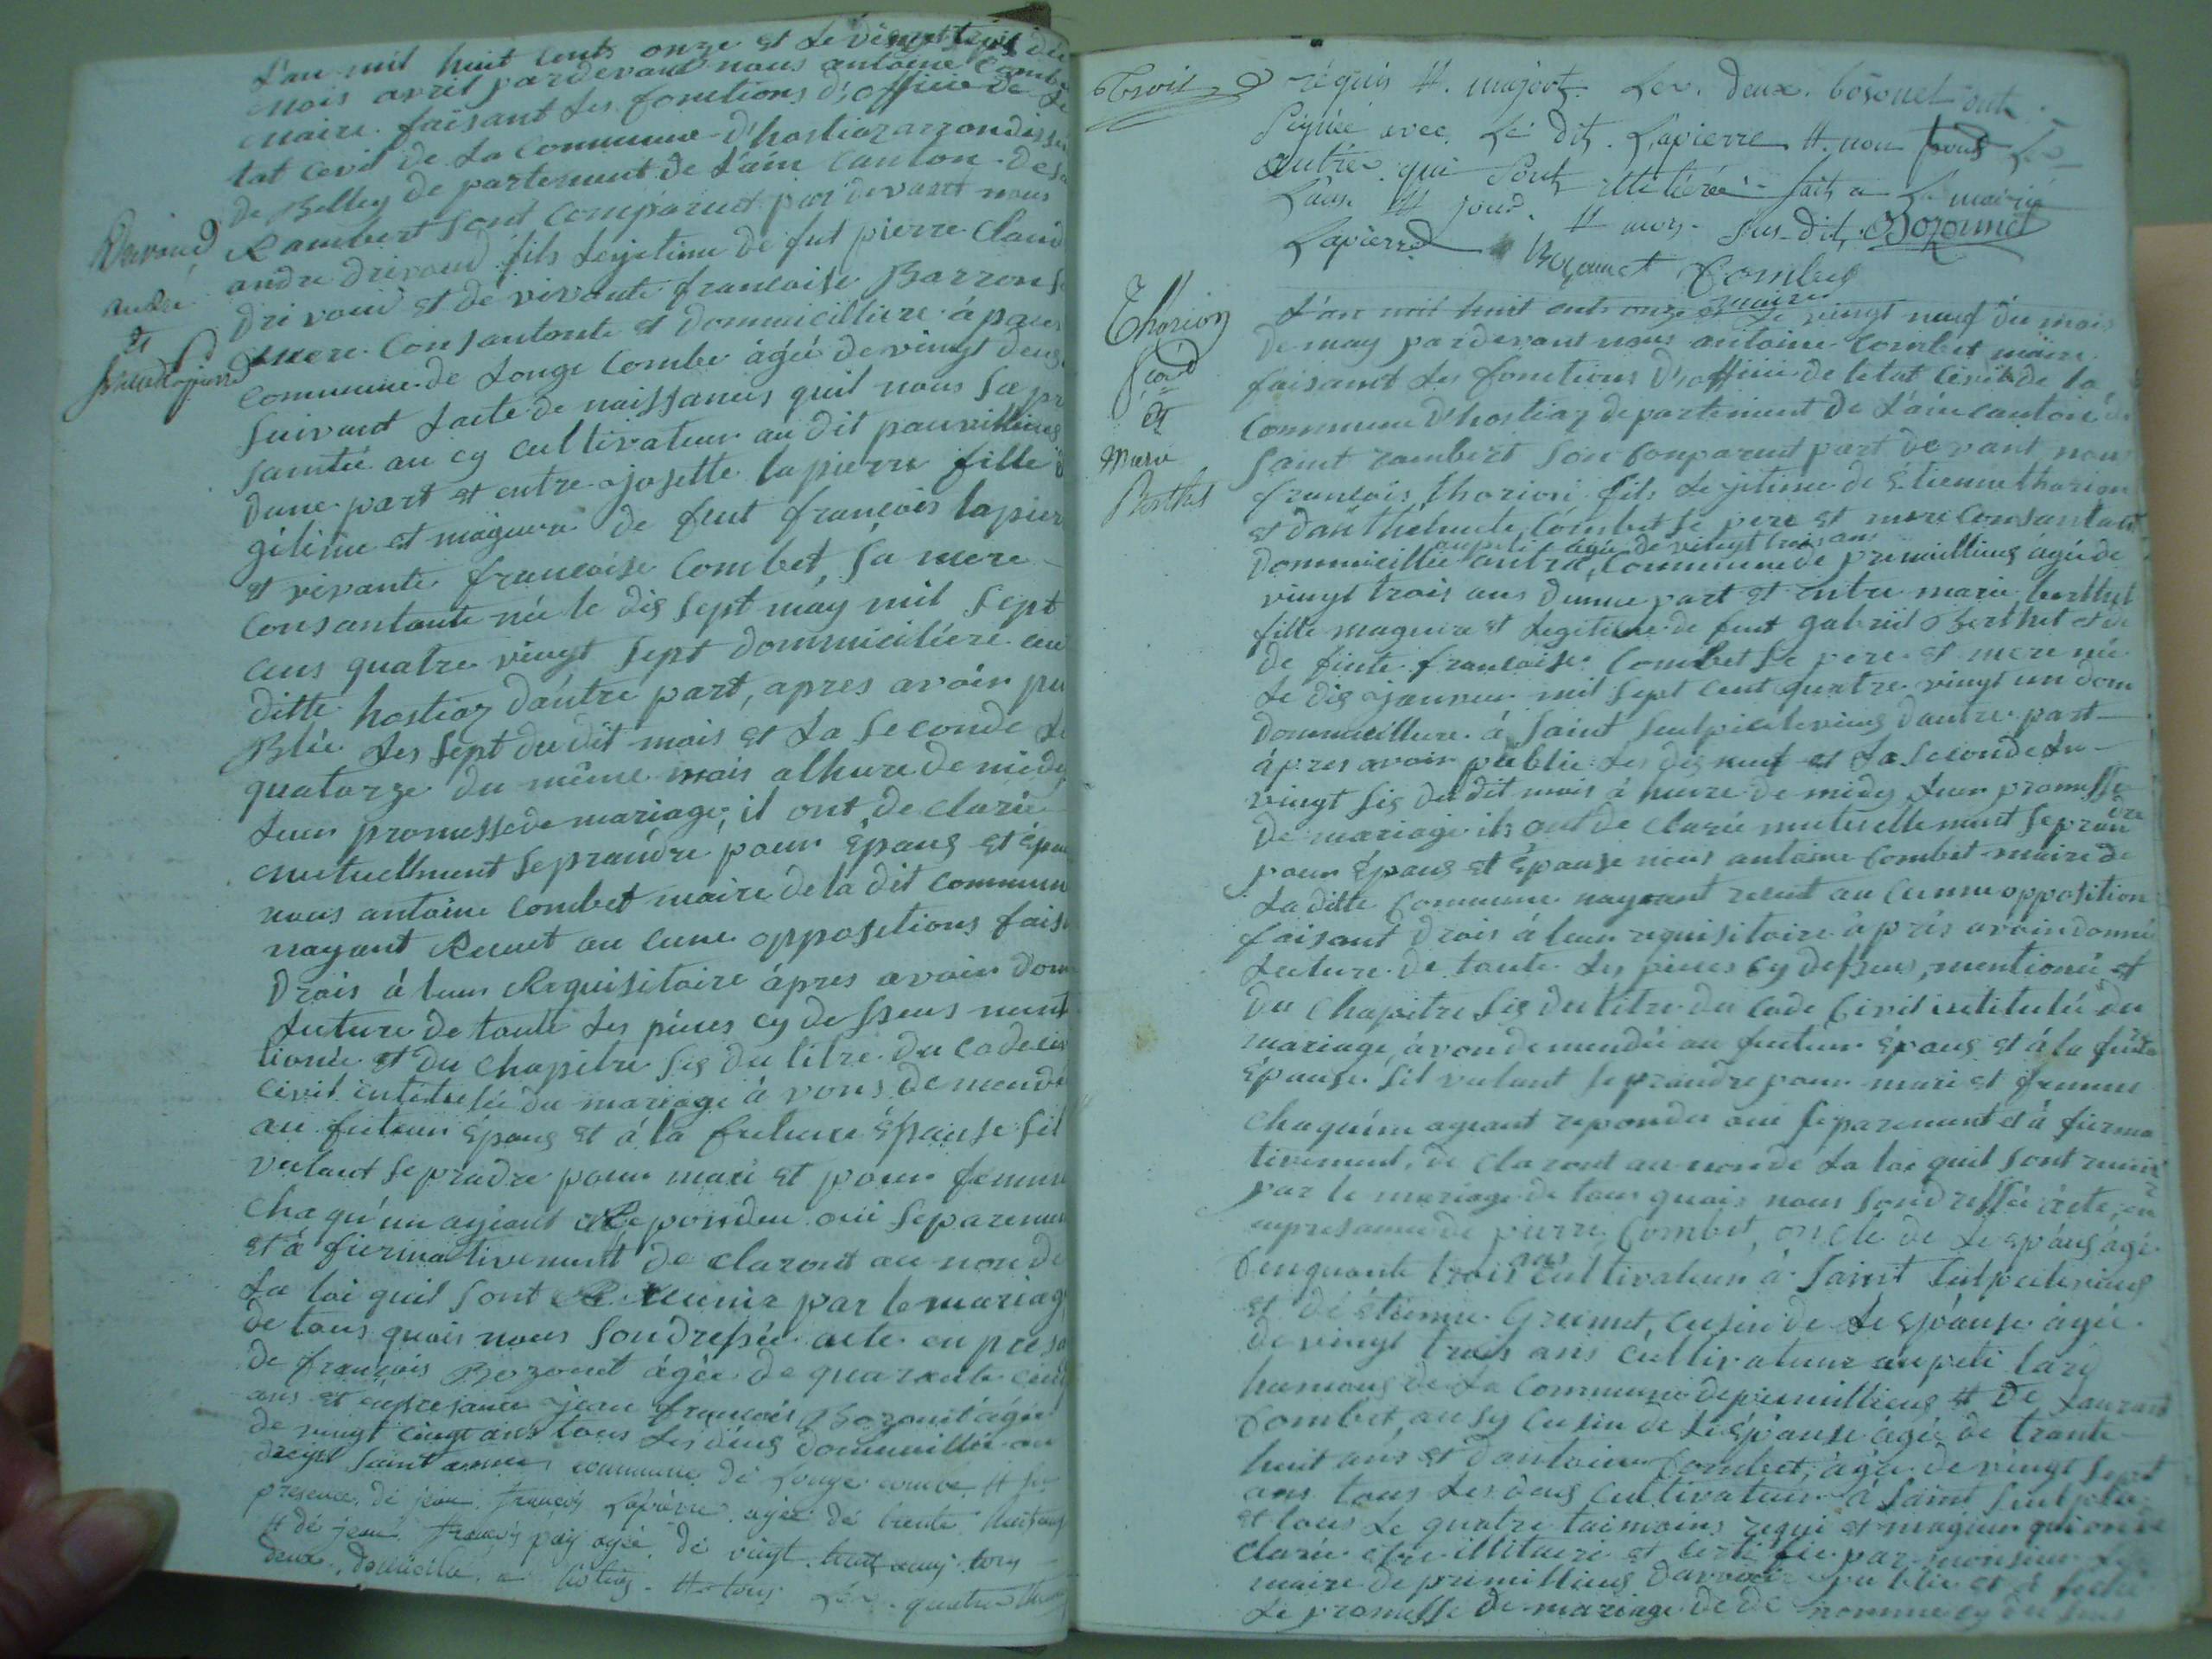 L'an mil huit cents onze et le vingt trois du
mois avril pardevant nous antoine Combet
maire faisant les fonctions d'officie de le
tat Cevil de La Commune d'hostiaz arrondisse
de Belley de partement de L'ain Canton de sa
Rambert sont Comparut par devant nous
Drivoud
andré
et
andre drivoud fils Legetime de fut pierre Claud
drivoud et de vivante francoise Barron s
mere Consantante et dommicilliere à
Commune de Longe Combe âgéé de vingt deux
suivant Lacte de naissances quil nous sa pr
santée au cy cultivateur au dit
dune part et entre josette lapierre fille le
gitime et mageure de feut francois lapier
et vivante francoise Combet, sa mere
Consantante née le dis sept may mil sept
cens quatre vingt sept dommiciliere au
ditte hostiaz dautre part, apres avoir pu
Bliée Les sept du dit mois et La Seconde Le
quatorze du même mois alhure de midy
Leur promesse de mariage, il ont de clarée
mutuellement se prandre pour Épous et Épou
nous antoine Combet maire de la dit Commune
nayant Recut au cune oppositions fais
Drois à leur Requisitoire àpres avoir don
Luture de toute Les pieces cy dessus ment
tionée et du Chapitre sis du titre du Code civ
Civil intitulée du mariage à vons demandé
au futeur Épous et à la future Épause sil
vulant se pradre pour mari et pour femme
Chaqu'un ayiant Repondu oui separemen
et à fierma tivement de clarout au non de
La loi quil sont Reeunir par le mariage
de tous quois nous son dressée acte en presa
de francois Bozonet âgée de quarante cinq
ans et en presance jean francois Bozonet âgée
de vingt cinq ans tous Les deus dommicillée au
saint commune de Longe combe et
presence de jean francois Lapierre agée de trente huit ans
et de jean francois agée de vingt huit ans tous
deux domicilié a hostiaz et tous Les quatre
requis et majeot Les deux bosonet ont
signée avec Le dit Lapierre et non pous Les
autres qui sont ilitérée fait a La mairie
L'an et jour et moy sus dit Bozonnet
Lapierre Bozonnet Combet
maire
Thorion
et
Marie
Berthet
L'an mil huit cents onze et le vingt neuf du mois
De may pardevant nous antoine Combet maire
faisant Les fonctions D'officie de letat Civil de la
Commune d'hostiaz departement de L'ain canton de
Saint rambert son Conparut part devant nous
francois thorion fils Legitime de Étienne thorion
et d'anthelmete Combet se pere et mere Consantant
âgée de vingt trois ans
Dommicillée Commune de premillieus âgée de
vingt trois ans dunne part et entre marie berthet
fille mageure et Legitime de feut gabriel Berthet et de
de feute francoise Combet se pere et mere née
Le dis janvier mil sept cent quatre vingt un dom
Dommicilliere à saint sulpicelevieus dautre part
âpres avoir publie Les dis neuf et La Seconde Le
vingt sis du dit mois à heure de midy Leur promesse
De mariage ils ont de clarée mutuellement se pran dre
pour Épous et Épouse nous antoine Combet maire de
La ditte Commune nayeant recut au Cunne opposition
faisant Drois à leur requisitoire âprés avoir donné
Luture de toute Les pieces cy dessus, mentionée et
Du Chapitre sis du titre du Code Civil intitulée du
mariage, avon demendée au futeur Épous et à la future
Épause sil vulant se prandre pour mari et femme
Chaquun ageant repondu oui separement et à fierma
tivement, de clarout au non de La loi quil sont reunir
par le mariage de tous quois nous son dressée acte, en
en presance de pierre Combet, oncle de Le épaus âgé
Cenquante trois ans Cultivateur à saint sulpicelevieus
et de étienne Grumet, cusin de Le épause âgée
de vingt trois ans cultivateur au peti
hameaus de La Commune de premillieus et De Laurant
Combet, au sy cusin de Le Épause âgée de trante
huit ans et dantoine Combet, âgée de vingt sept
ans tous Les deus Cultivateur à saint sulpice
et tous Le quatre taimoins requi et mageur qui on de
clarée etre illiterée et certi fie par monsieur Le
maire de premillieus davoir publie et
Le promesse de mariage de de nommée cy dessus